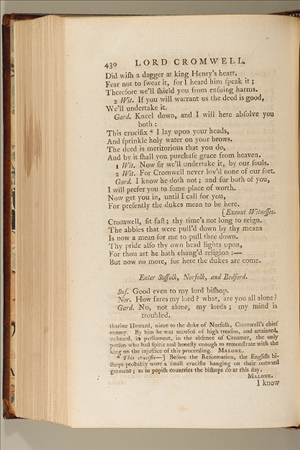 430 LORD CROMWELL.
Did wish a dagger at king Henry's heart.
Fear not to swear it, for I heard him speak it;
Therefore we'll shield you from ensuing harms.
2 Wit. If you will warrant us the deed is good,
We'll undertake it.
Gard. Kneel down, and I will here absolve you
both:
This crucifix * I lay upon your heads,
And sprinkle holy water on your brows.
The deed is meritorious that you do,
And by it shall you purchase grace from heaven.
1 Wit. Now sir we'll undertake it, by our souls.
2 Wit. For Cromwell never lov'd none of our sort.
Gard. I know he doth not; and for both of you,
I will prefer you to some place of worth.
Now get you in, until I call for you,
For presently the dukes mean to be here.
[Exeunt Witnesses.
Cromwell, sit fast; thy time's not long to reign.
The abbies that were pull'd down by thy means
Is now a mean for me to pull thee down.
Thy pride also thy own head lights upon,
For thou art he hath chang'd religion:—
But now no more, for here the dukes are come.
Enter Suffolk, Norfolk, and Bedford.
Suf. Good even to my lord bishop.
Nor. How fares my lord? what, are you all alone?
Gard. No, not alone, my lords; my mind is
troubled.
tharine Howard, niece to the duke of Norfolk, Cromwell's chief
enemy. By him he was accused of high treason, and attainted,
unheard, in parliament, in the absence of Cranmer, the only
person who had spirit and honesty enough to remonstrate with the
king on the injustice of this proceeding. MALONE.
* This crucifix—] Before the Reformation, the English bi-
shops probably wore a small crucifix hanging on their outward
garment; as in popish countries the bishops do at this day.
MALONE.
I know